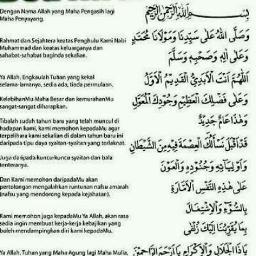 Dengan Nama Allah yang Maha Pengasih lagi
Maha Penyayang.
بِسْمِ اللَّهِ الرَّحْمَنِ الرَّحِيمِ
Rahmat dan Sejahtera keatas Penghulu Kami Nabi
Muhammad dan keatas keluarganya dan
sahabat-sahabat baginda sekalian.
وَصَلَّى اللَّهُ عَلَى سَيِّدِنَا وَمَوْلَانَا مُحَمَّدٍ
وَعَلَى آلِهِ وَصَحْبِهِ وَسَلَّمَ
Ya Allah, Engkaulah Tuhan yang kekal
selama-lamanya, sedia ada, tiada permulaan.
اللَّهُمَّ أَنْتَ الْأَبَدِيُّ الْقَدِيمُ الْأَوَّلُ
KelebihanMu Maha Besar dan kemurahanMu
sangat-sangat diharapkan.
وَعَلَى فَضْلِكَ الْعَظِيمِ وَجُودِكَ الْمُعَوَّلُ
Tibalah sudah tahun baru yang telah muncul di
hadapan kami, kami memohon kepadaMu agar
terpelihara kami sekalian di dalam tahun baru ini
daripada tipu daya syaitan-syaitan yang terlaknat.
وَهَذَا عَامٌ جَدِيدٌ
قَدْ أَقْبَلَ نَسْأَلُكَ الْعِصْمَةَ فِيهِ مِنَ الشَّيْطَانِ
Juga daripada kuncu-kuncu syaitan dan bala
tenteranya.
وَأَوْلِيَائِهِ وَجُنُودِهِ وَالْعَوْنَ
Dan Kami memohon daripadaMu akan
pertolongan mengalahkan runtunan nafsu amarah
(nafsu yang mendorong kepada kejahatan).
عَلَى هَذِهِ النَّفْسِ الْأَمَّارَةِ
بِالسُّوءِ وَالْإِشْتِغَالَ
Kami memohon juga kepadaMu Ya Allah, akan rasa
sedia ingin membuat kerja-kerja kebajikan yang
boleh mendampingkan diri kami kepadaMu.
بِمَا يُقَرِّبُنَا إِلَيْكَ زُلْفَى
Ya Allah, Tuhan yang Maha Agung lagi Maha Mulia,
يَا ذَا الْجَلَالِ وَالْإِكْرَامِ يَا أَرْحَمَ الرَّاحِمِينَ